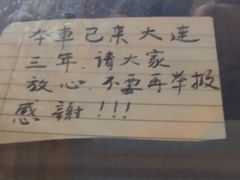 本車已来大连
三年,请大家
放心,不要再举报
感謝!!!